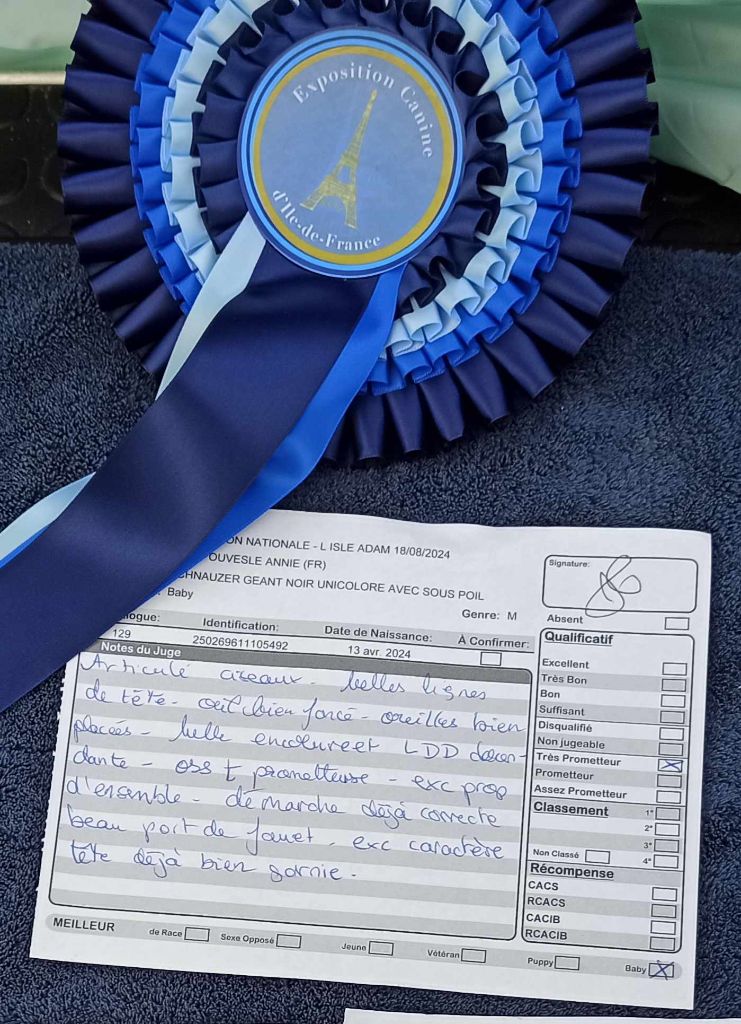 Exposition Canine
d'Ile-de-France
ON NATIONALE - L ISLE ADAM 18/08/2024
OUVESLE ANNIE (FR)
CHNAUZER GEANT NOIR UNICOLORE AVEC SOUS POIL
Baby
Genre: M
logue: Identification: Date de Naissance: À Confirmer:
129 250269611105492 13 avr. 2024
Notes du Juge
Articulé ciseaux - belles lignes
de tête - œil bien foncé - oreilles bien
placées - belle encolure et LDD descen-
dante - oss t prometteuse - exc prop
d'ensemble - démarche déjà correcte
beau port de fouet. exc caractère
tête déjà bien garnie.
Signature:
Absent
Qualificatif
Excellent
Très Bon
Bon
Suffisant
Disqualifié
Non jugeable
Très Prometteur
Prometteur
Assez Prometteur
Classement
1°
2°
3°
Non Classé 4°
Récompense
CACS
RCACS
CACIB
RCACIB
MEILLEUR de Race Sexe Opposé Jeune Vétéran Puppy Baby